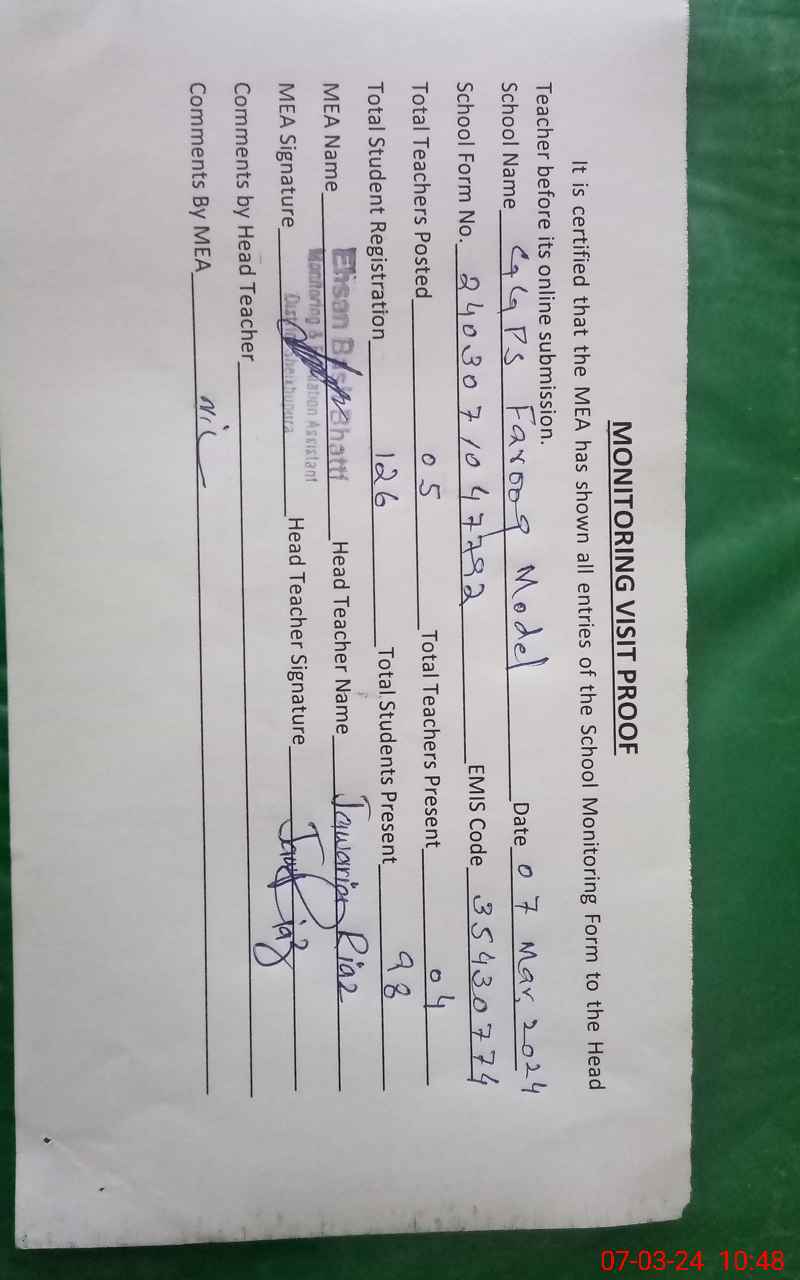 MONITORING VISIT PROOF
It is certified that the MEA has shown all entries of the School Monitoring Form to the Head
Teacher before its online submission.
School Name GGPS Farooq Model Date 07 Mar, 2024
School Form No. 2403071047292 EMIS Code 35430774
Total Teachers Posted 05 Total Teachers Present 04
Total Student Registration 126 Total Students Present 98
MEA Name Ehsan Bhatti Head Teacher Name Jawaria Riaz
Monitoring & Evaluation Assistant
District Sheikhupura
MEA Signature Head Teacher Signature Riaz
Comments by Head Teacher
Comments By MEA nil
07-03-24 10:48